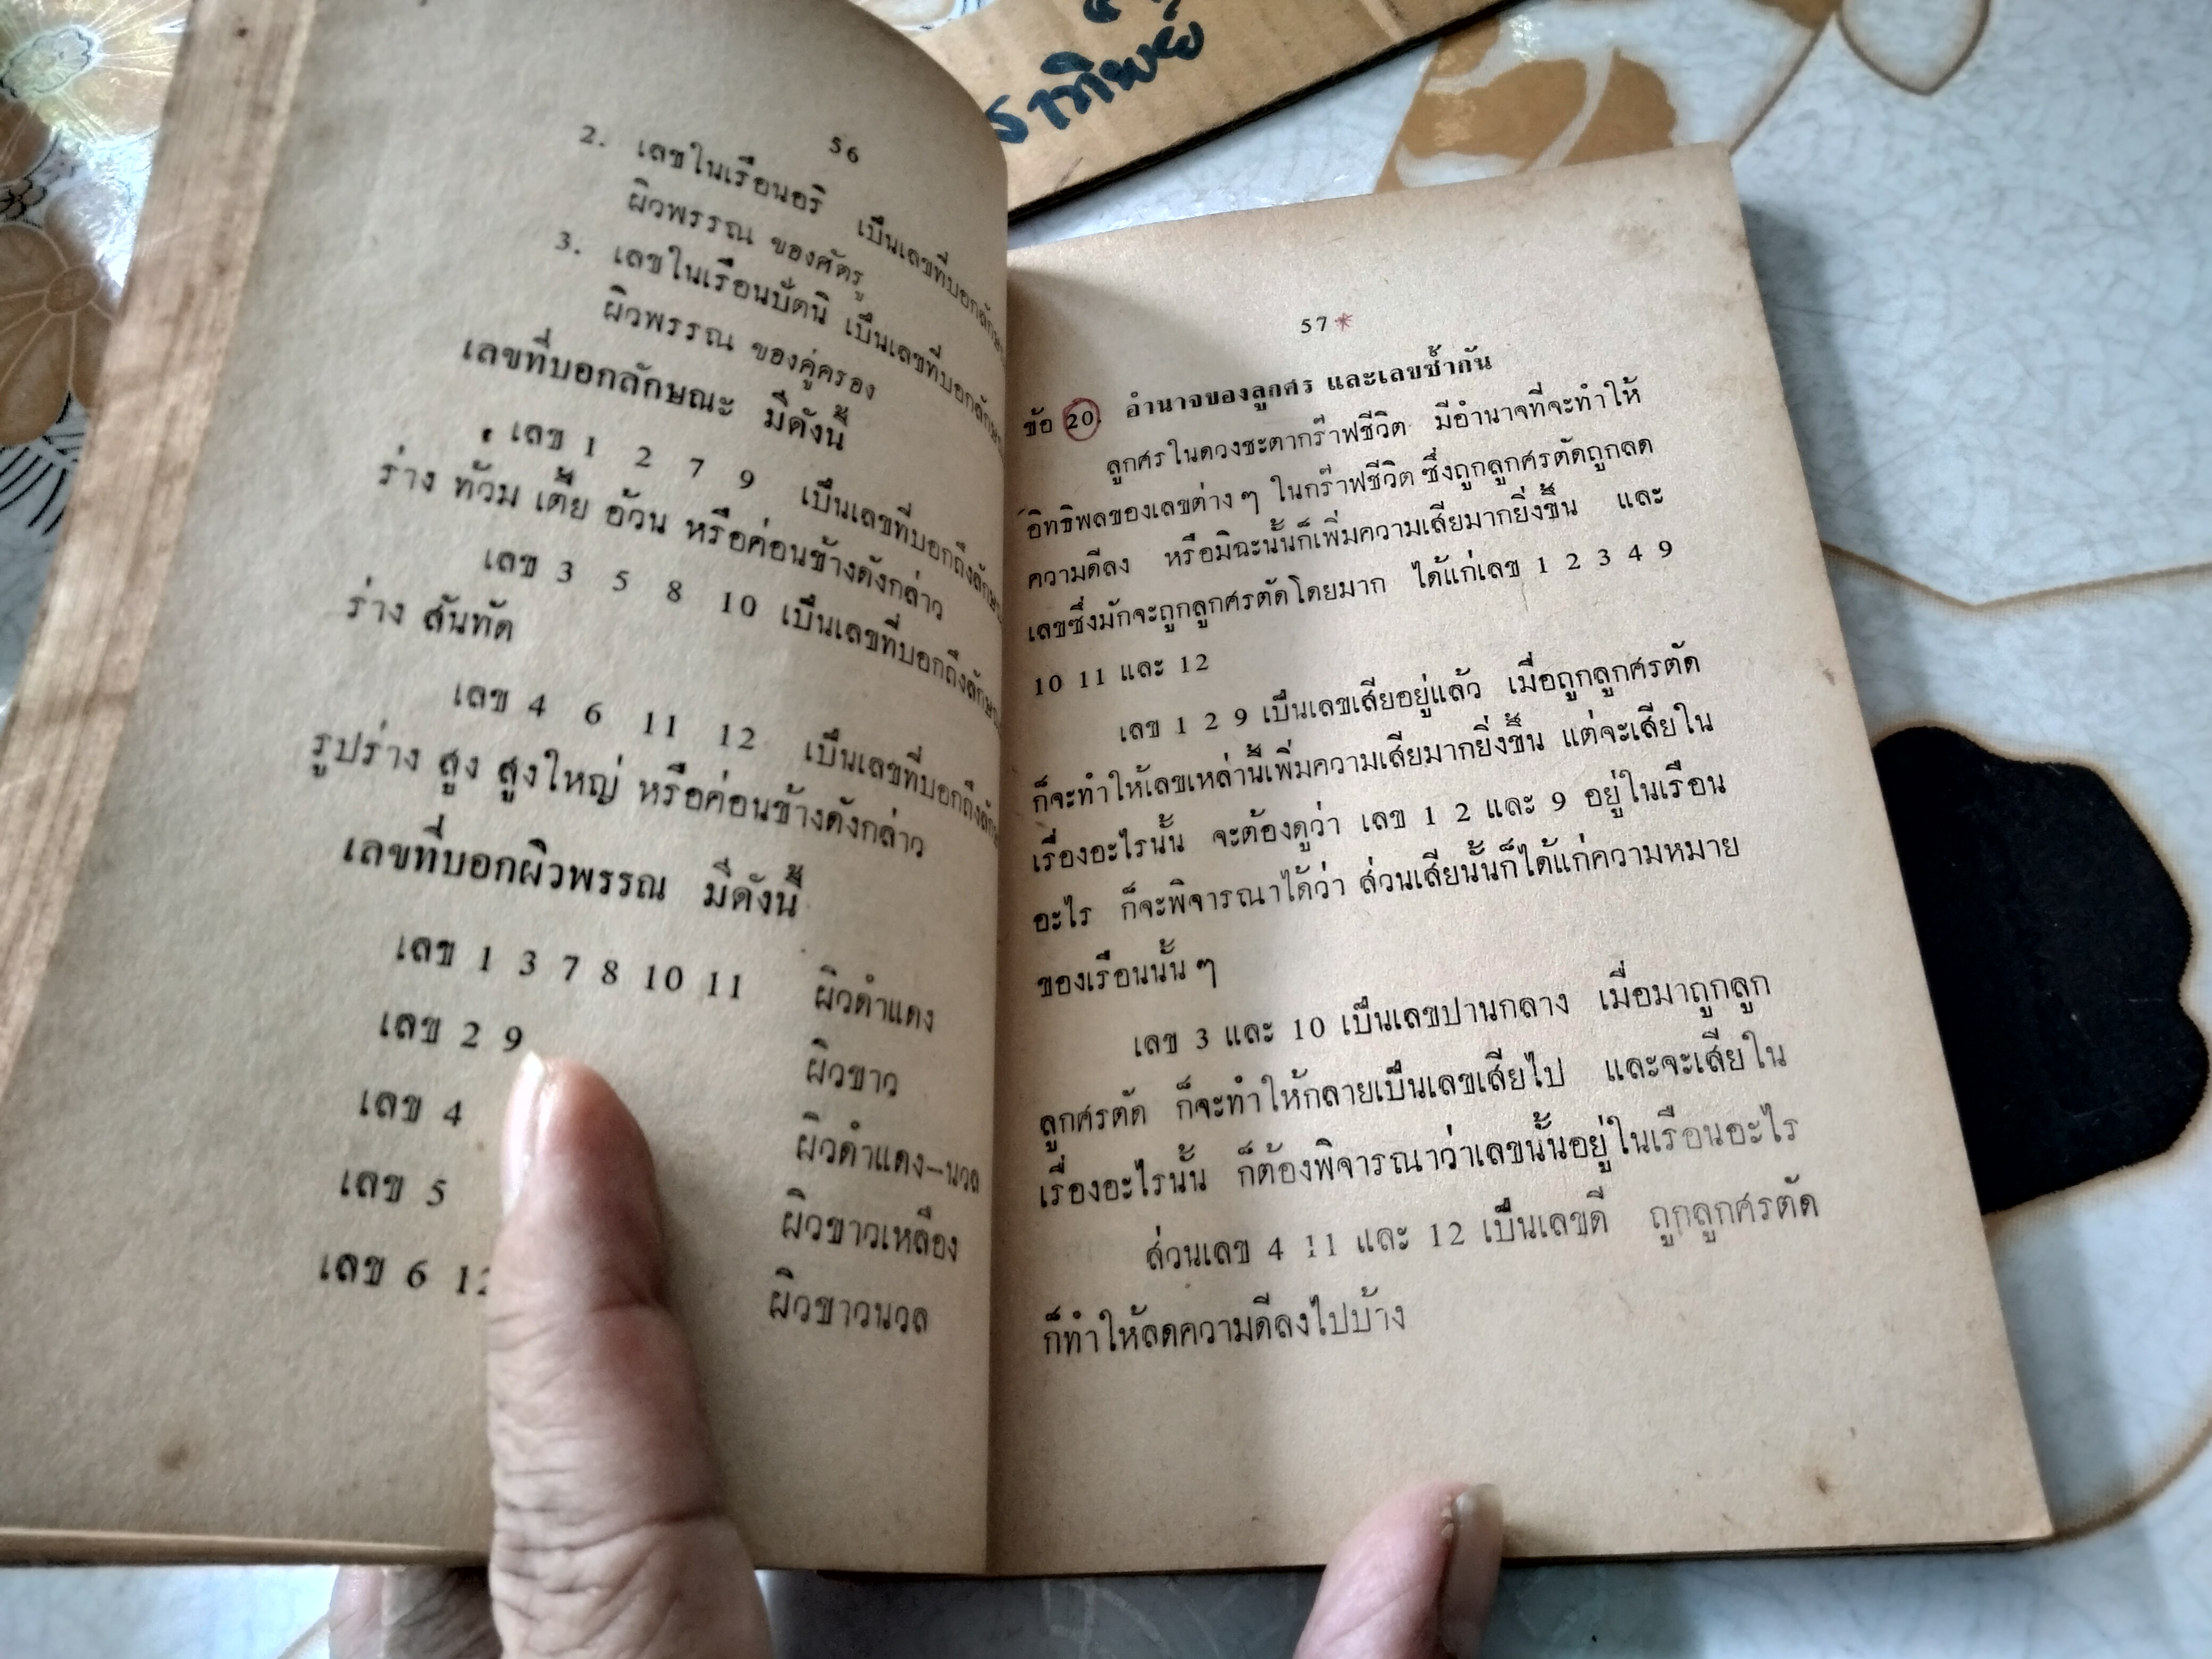 ราทิพย์
56
2. เลขในเรือนอริ เป็นเลขที่บอกลักษ
ผิวพรรณ ของศัตรู
3. เลขในเรือนปัตนิ เป็นเลขที่บอกลักษ
ผิวพรรณ ของคู่ครอง
เลขที่บอกลักษณะ มีดังนี้
เลข 1 2 7 9 เป็นเลขที่บอกถึงลักษ
ร่าง ท้วม เตี้ย อ้วน หรือค่อนข้างดังกล่าว
เลข 3 5 8 10 เป็นเลขที่บอกถึงลักษ
ร่าง สันทัด
เลข 4 6 11 12 เป็นเลขที่บอกถึงลัก
รูปร่าง สูง สูงใหญ่ หรือค่อนข้างดังกล่าว
เลขที่บอกผิวพรรณ มีดังนี้
เลข 1 3 7 8 10 11 ผิวดำแดง
เลข 2 9 ผิวขาว
เลข 4 ผิวดำแดง-นวล
เลข 5 ผิวขาวเหลือง
เลข 6 12 ผิวขาวนวล
57*
ข้อ 20. อำนาจของลูกศร และเลขซ้ำกัน
ลูกศรในดวงชะตากร๊าฟชีวิต มีอำนาจที่จะทำให้
อิทธิพลของเลขต่าง ๆ ในกร๊าฟชีวิต ซึ่งถูกลูกศรตัดถูกลด
ความดีลง หรือมิฉะนั้นก็เพิ่มความเสียมากยิ่งขึ้น และ
เลขซึ่งมักจะถูกลูกศรตัดโดยมาก ได้แก่เลข 1 2 3 4 9
10 11 และ 12
เลข 1 2 9 เป็นเลขเสียอยู่แล้ว เมื่อถูกลูกศรตัด
ก็จะทำให้เลขเหล่านี้เพิ่มความเสียมากยิ่งขึ้น แต่จะเสียใน
เรื่องอะไรนั้น จะต้องดูว่า เลข 1 2 และ 9 อยู่ในเรือน
อะไร ก็จะพิจารณาได้ว่า ส่วนเสียนั้นก็ได้แก่ความหมาย
ของเรือนนั้น ๆ
เลข 3 และ 10 เป็นเลขปานกลาง เมื่อมาถูกลูก
ลูกศรตัด ก็จะทำให้กลายเป็นเลขเสียไป และจะเสียใน
เรื่องอะไรนั้น ก็ต้องพิจารณาว่าเลขนั้นอยู่ในเรือนอะไร
ส่วนเลข 4 11 และ 12 เป็นเลขดี ถูกลูกศรตัด
ก็ทำให้ลดความดีลงไปบ้าง